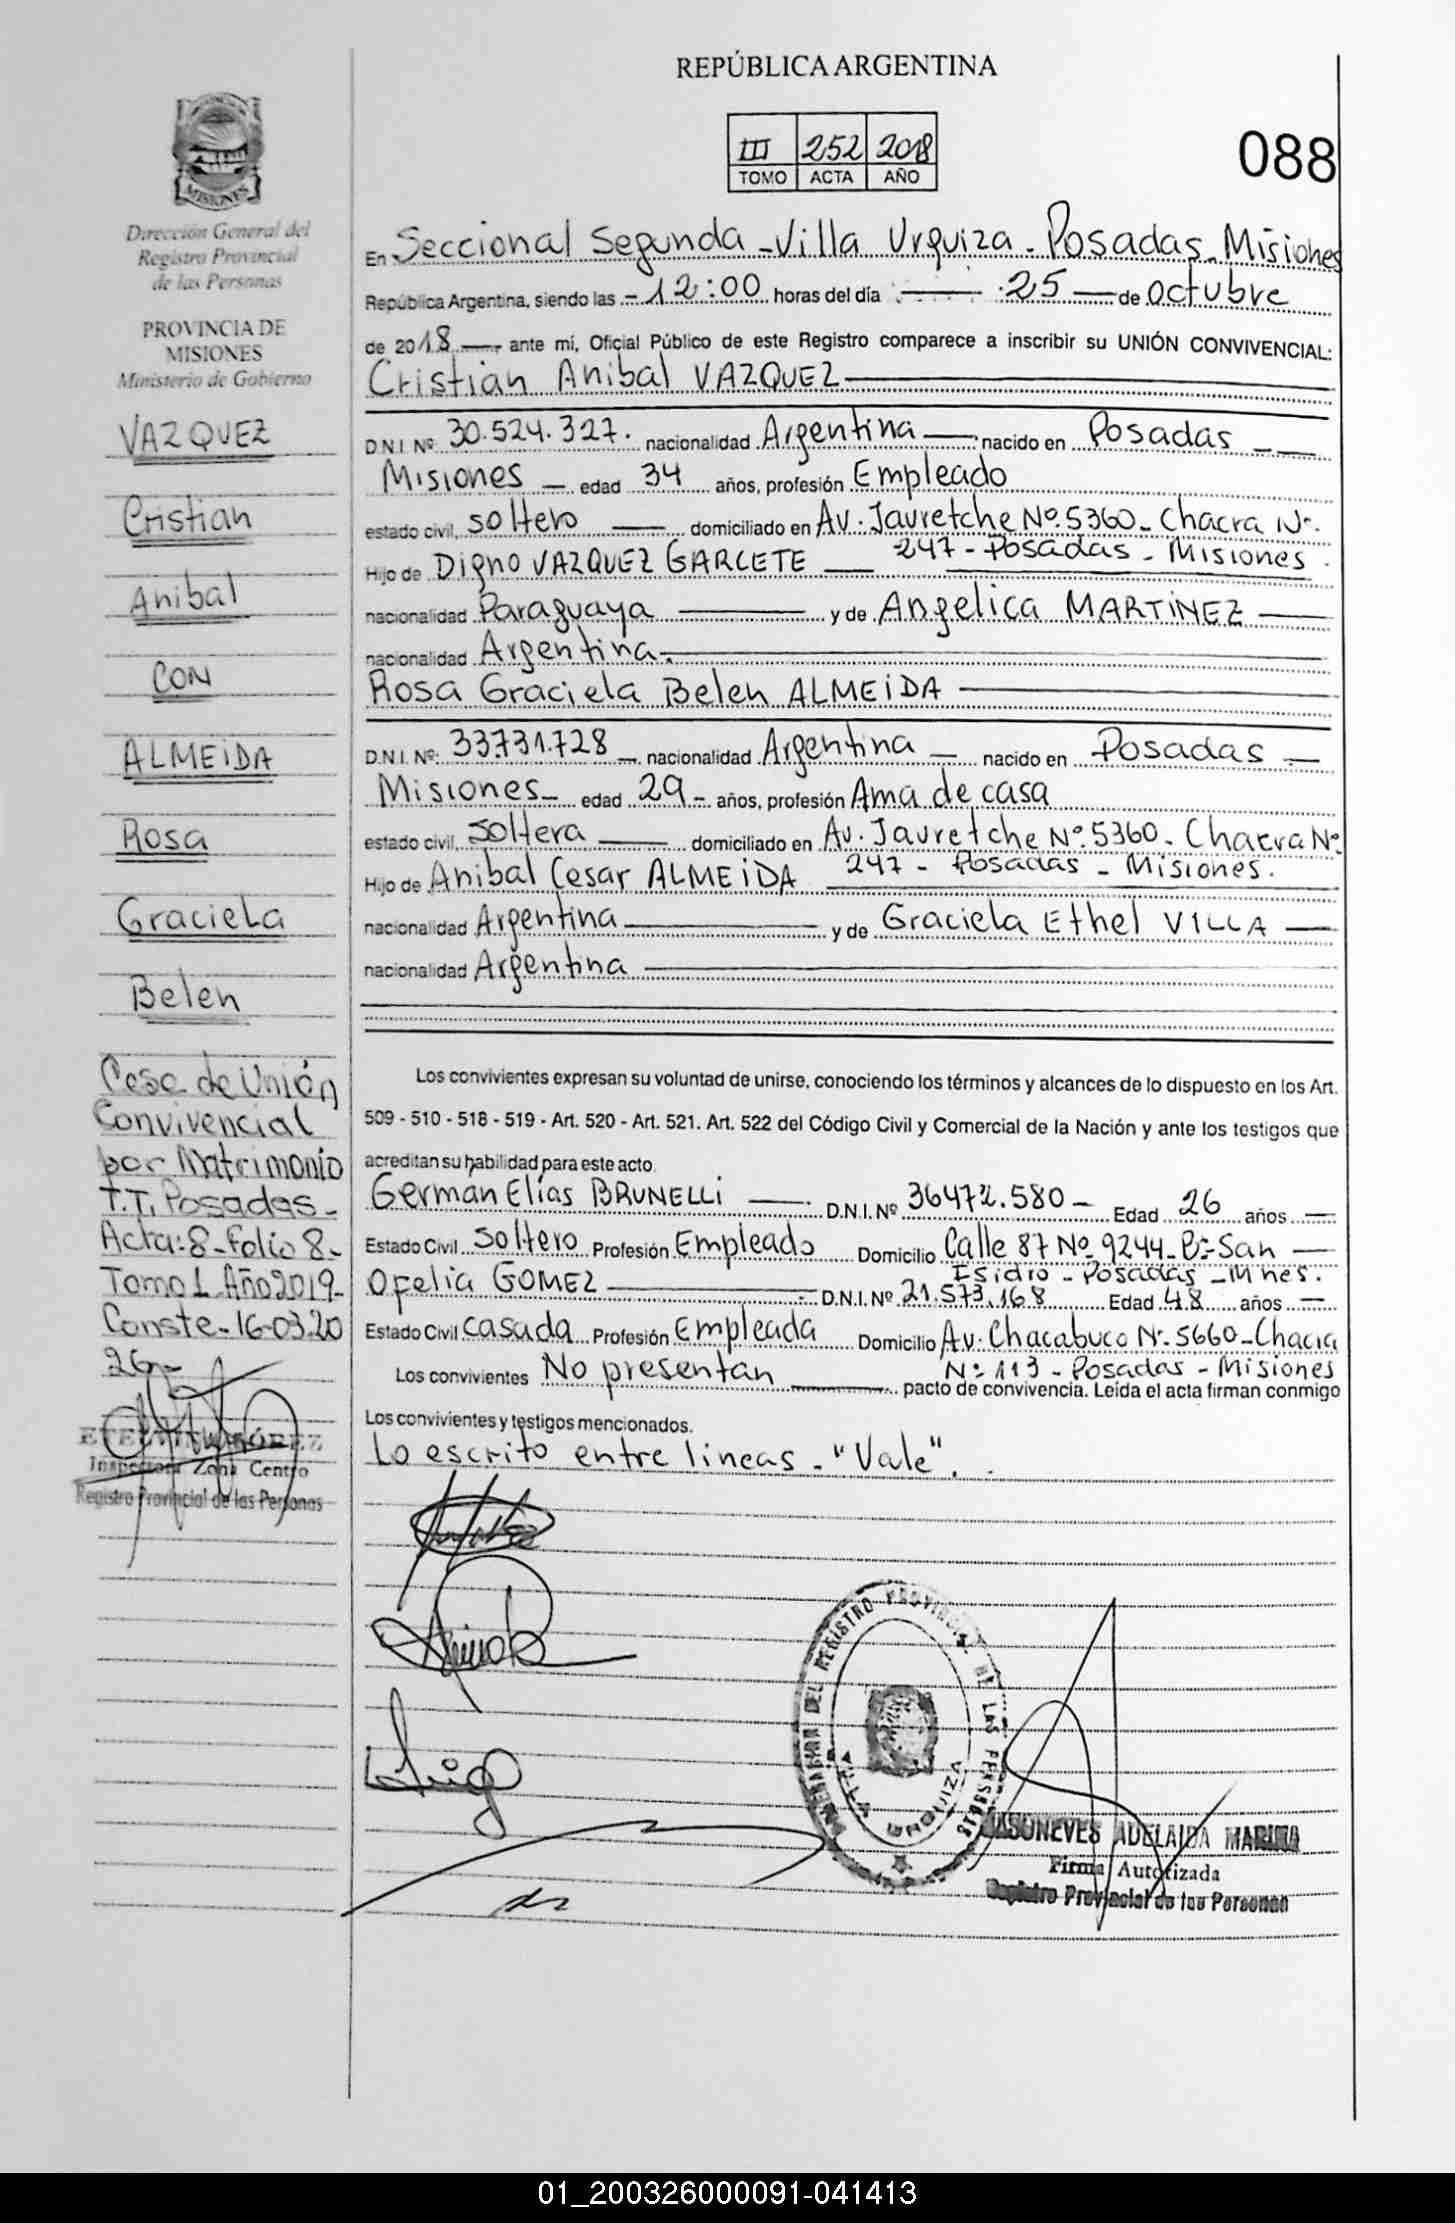 REPÚBLICA ARGENTINA
III 252 2018
TOMO ACTA AÑO
088
MISIONES
Dirección General del
Registro Provincial
de las Personas
PROVINCIA DE
MISIONES
Ministerio de Gobierno
VAZQUEZ
Cristian
Anibal
CON
ALMEIDA
Rosa
Graciela
Belen
Cese de Unión
Convivencial
por Matrimonio
T.T. Posadas-
Acta: 8-Folio 8-
Tomo 1 Año 2019-
Conste-16-03-20
Inspectora Zona Centro
Registro Provincial de las Personas
En Seccional Segunda - Villa Urquiza - Posadas - Misiones
República Argentina, siendo las - 12:00 horas del día 25 de Octubre
de 2018 ante mí, Oficial Público de este Registro comparece a inscribir su UNIÓN CONVIVENCIAL:
Cristian Anibal VAZQUEZ
D.N.I. Nº 30.524.327. nacionalidad Argentina nacido en Posadas
Misiones edad 34 años, profesión Empleado
estado civil, soltero domiciliado en Av. Jauretche Nº 5360 - Chacra Nº
247 - Posadas - Misiones
Hijo de Digno VAZQUEZ GARCETE
nacionalidad Paraguaya y de Angelica MARTINEZ
nacionalidad Argentina.
Rosa Graciela Belen ALMEIDA
D.N.I. Nº: 33.731.728 nacionalidad Argentina nacido en Posadas
Misiones - edad 29 - años, profesión Ama de casa
estado civil, soltera domiciliado en Av. Jauretche Nº 5360 - Chacra Nº
247 - Posadas - Misiones.
Hijo de Anibal Cesar ALMEIDA
nacionalidad Argentina y de Graciela Ethel VILLA
nacionalidad Argentina
Los convivientes expresan su voluntad de unirse, conociendo los términos y alcances de lo dispuesto en los Art.
509 - 510 - 518 - 519 - Art. 520 - Art. 521. Art. 522 del Código Civil y Comercial de la Nación y ante los testigos que
acreditan su habilidad para este acto.
German Elias BRUNELLI D.N.I. Nº Edad 26 años
Estado Civil soltero Profesión Empleado Domicilio Calle 87 Nº 9244 - Bº San
Isidro - Posadas - Mnes.
Ofelia GOMEZ D.N.I. Nº 21.573.168 Edad 48 años
Estado Civil casada Profesión Empleada Domicilio Av. Chacabuco Nº 5660 - Chacra
Nº 113 - Posadas - Misiones
Los convivientes No presentan pacto de convivencia. Leída el acta firman conmigo
Los convivientes y testigos mencionados.
Lo escrito entre lineas - "Vale".
DEL REGISTRO PROVINCIAL DE LAS PERSONAS
VILLA URQUIZA
ADELAIDA MARINA
Firma Autorizada
Registro Provincial de las Personas
01_200326000091-041413